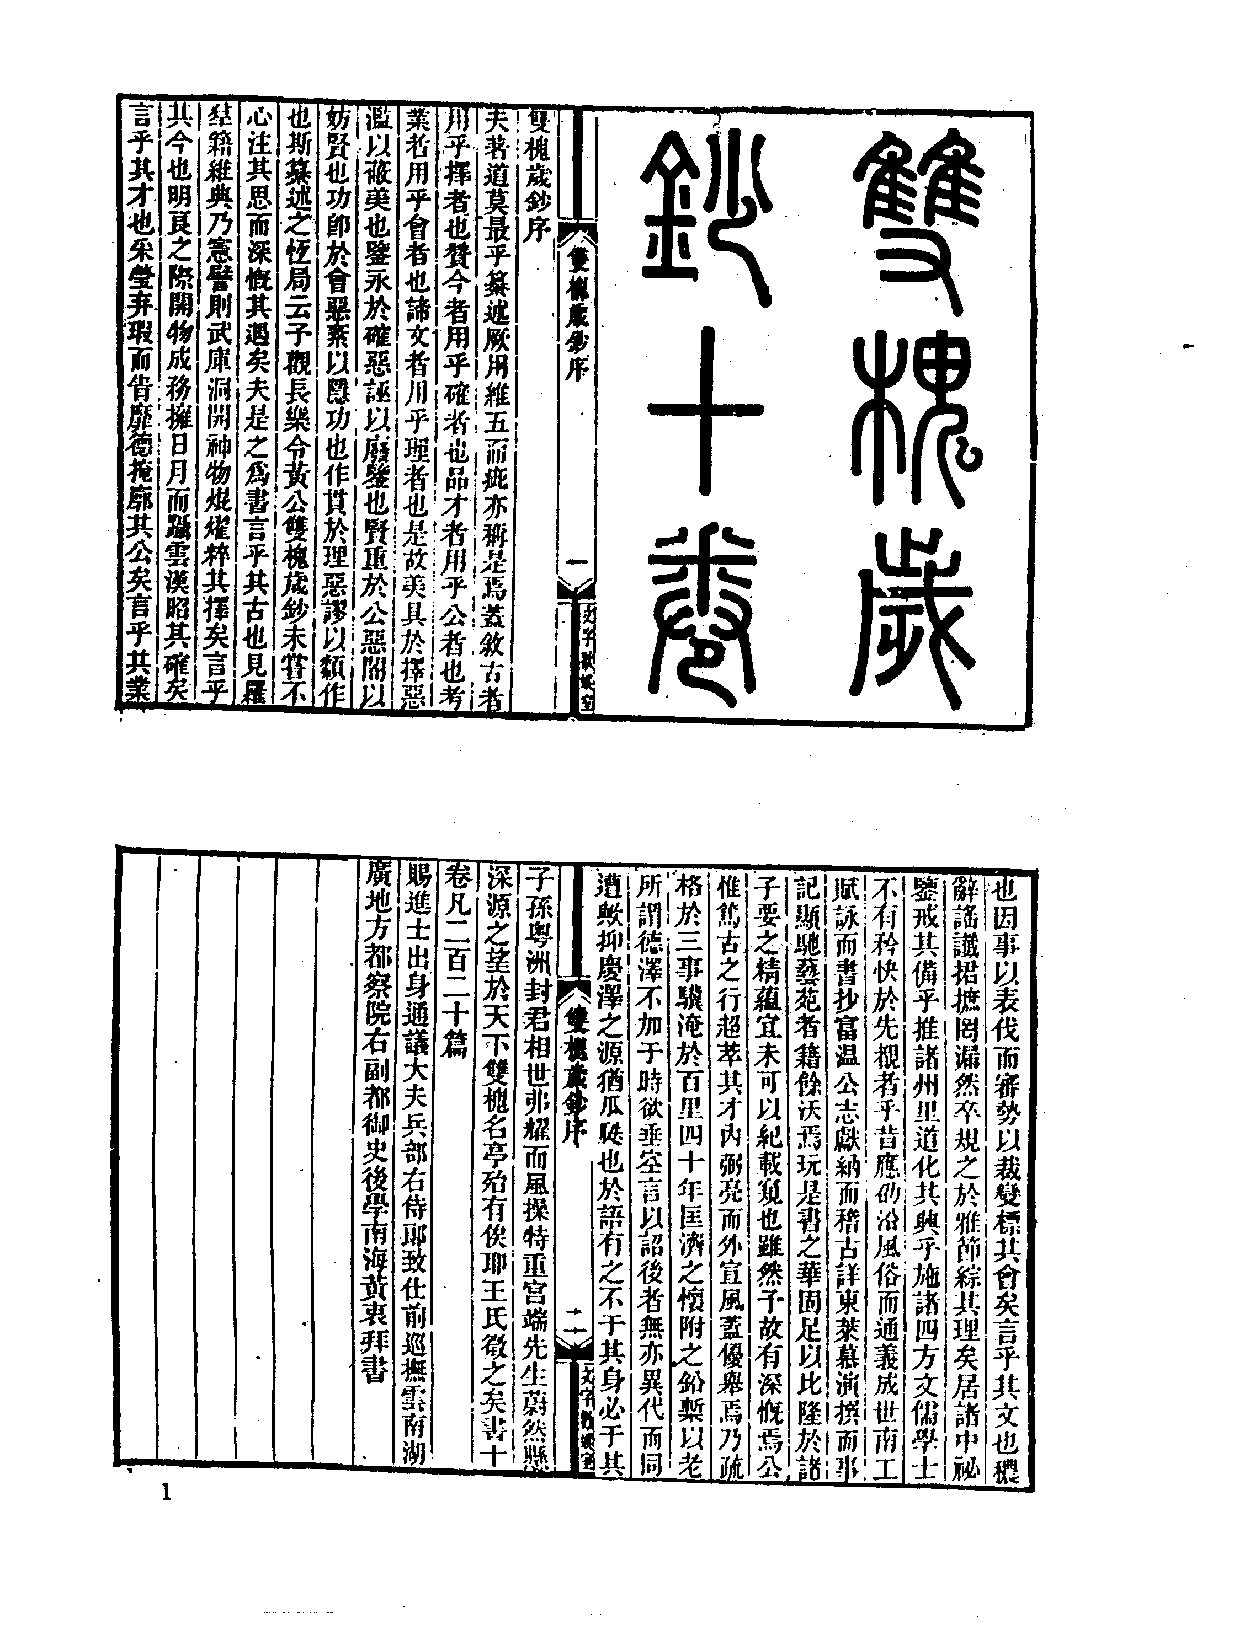 雙槐歲
鈔十卷
雙槐歲鈔序
一
雙槐歲鈔序
夫著道莫最乎纂述厥用維五而疵亦稱是焉蓋敘古者
用乎擇者也贊今者用乎確者也品才者用乎公者也考
業者用乎會者也諦文者用乎理者也是故美具於擇惡
濫以蔽美也鑒永於確惡誣以廢鑒也賢重於公惡閣以
妨賢也功卽於會惡紊以隱功也作貫於理惡謬以纇作
也斯纂述之恆局云予觀長樂令黃公雙槐歲鈔未嘗不
心注其思而深慨其遇矣夫是之爲書言乎其古也見羅
羣籍維典乃憲譬則武庫洞開神物焜燿粹其擇矣言乎
其今也明良之際開物成務擁日月而躡雲漢昭其確矣
言乎其才也采瑩弃瑕而眚靡德掩廓其公矣言乎其業
也因事以表伐而審勢以裁變標其會矣言乎其文也穠
辭謠讖捃摭罔漏然卒規之於雅節綜其理矣居諸中祕
鑒戒其備乎推諸州里道化其興乎施諸四方文儒學士
不有矜快於先覩者乎昔應劭沿風俗而通義成世南工
賦詠而書抄富温公志獻納而稽古詳東萊慕演撰而事
記顯馳藝苑者籍餘沃焉玩是書之華固足以比隆於諸
子要之精蘊宜未可以紀載窺也雖然予故有深慨焉公
惟篤古之行超萃其才內弼亮而外宣風蓋優舉焉乃疏
格於三事驥淹於百里四十年匡濟之懷附之鉛槧以老
所謂德澤不加于時欲垂空言以詔後者無亦異代而同
遭歟抑慶澤之源猶瓜瓞也於語有之不于其身必于其
雙槐歲鈔序
二
子孫粵洲封君相世弗耀而風操特重宮端先生蔚然縣
深源之望於天下雙槐名亭殆有俟耶王氏徵之矣書十
卷凡二百二十篇
賜進士出身通議大夫兵部右侍郎致仕前巡撫雲南湖
廣地方都察院右副都御史後學南海黃衷拜書
1